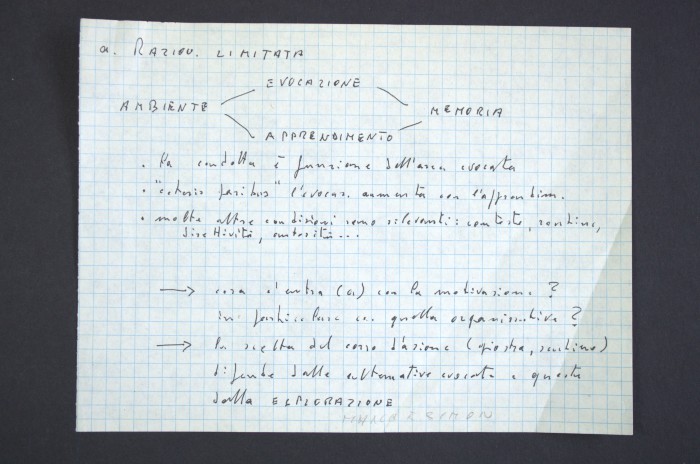 a. RAZION. LIMITATA
EVOCAZIONE
AMBIENTE MEMORIA
APPRENDIMENTO
• La condotta è funzione dell'area evocata
• "ceteris paribus" l'evocaz. aumenta con l'apprendim.
• molte altre condizioni sono rilevanti: contesto, routine,
direttività, autorità...
→ cosa c'entra (a) con la motivazione?
in particolare con quella organizzativa?
→ la scelta del corso d'azione (giostra, routine)
dipende dalle alternative evocate e queste
dalla ESPLORAZIONE
MARCH & SIMON